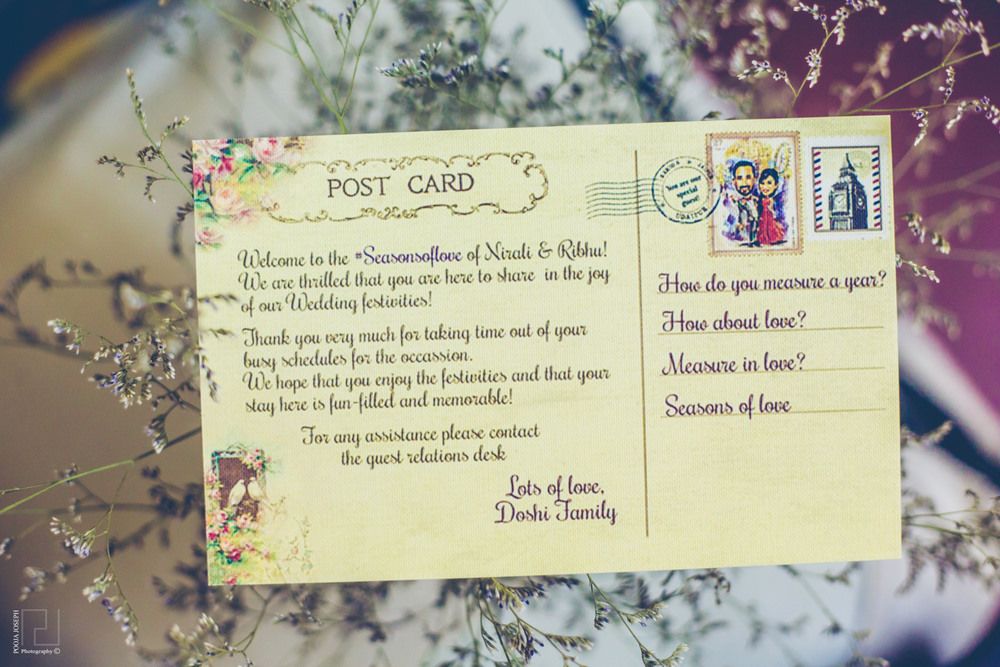 POST CARD
Welcome to the #Seasonsoflove of Nirali & Ribhu!
We are thrilled that you are here to share in the joy
of our Wedding festivities!
Thank you very much for taking time out of your
busy schedules for the occassion.
We hope that you enjoy the festivities and that your
stay here is fun-filled and memorable!
For any assistance please contact
the guest relations desk
Lots of love,
Doshi Family
You are our
special
Guest
UDAIPUR
How do you measure a year?
How about love?
Measure in love?
Seasons of love
POOJA JOSEPH
Photography ©